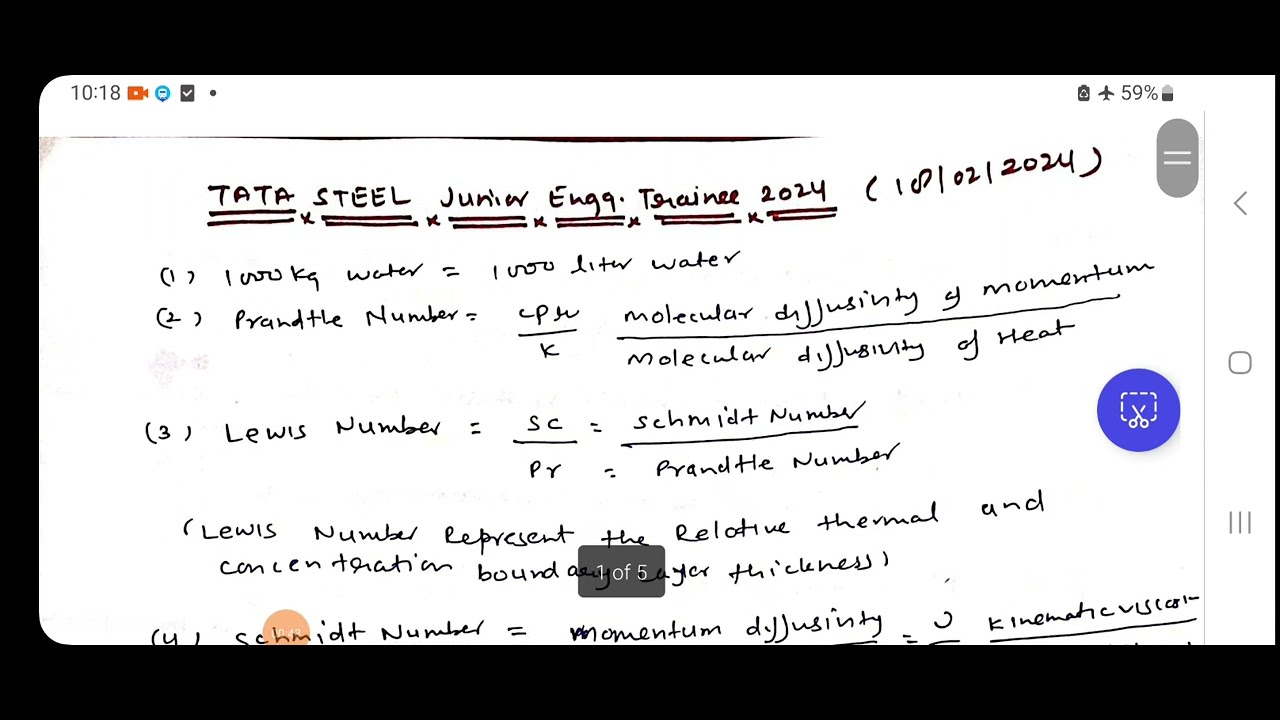 10:18
59%
TATA STEEL Junior Engg. Trainee 2024 (18/02/2024)
(1) 1000 kg water = 1000 liter water
(2) Prandtle Number = cpμ / K molecular diffusivity of momentum / molecular diffusivity of Heat
(3) Lewis Number = Sc / Pr = Schmidt Number / Prandtle Number
(Lewis Number Represent the Relative thermal and
concentration boundary layer thickness)
1 of 5
(4) Schmidt Number = momentum diffusivity = υ Kinematic